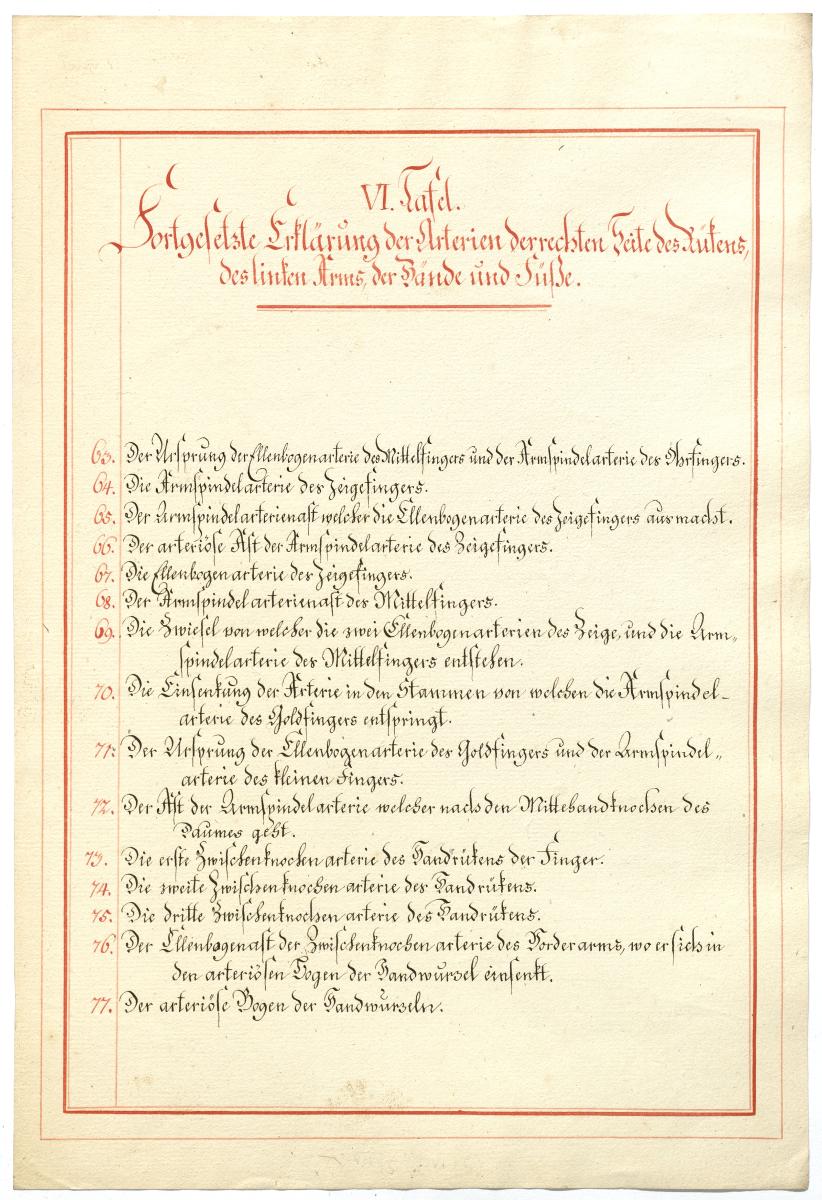 VI. Tafel.
Fortgesetzte Erklärung der Arterien der rechten Seite des Rükens,
des linken Arms, der Hände und Füße.
63. Der Ursprung der Ellenbogenarterie des Mittelfingers und der Armspindelarterie des Ohrfingers.
64. Die Armspindelarterie des Zeigefingers.
65. Der Armspindelarterienast welcher die Ellenbogenarterie des Zeigefingers ausmacht.
66. Der arteriöse Ast der Armspindelarterie des Zeigefingers.
67. Die Ellenbogenarterie des Zeigefingers.
68. Der Armspindelarterienast des Mittelfingers.
69. Die Zwiesel von welcher die zwei Ellenbogenarterien des Zeige, und die Arm„
spindelarterie des Mittelfingers entstehen.
70. Die Einsenkung der Arterie in den Stammen von welchen die Armspindel-
arterie des Goldfingers entspringt.
71. Der Ursprung der Ellenbogenarterie des Goldfingers und der Armspindel„
arterie des kleinen Fingers.
72. Der Ast der Armspindelarterie welcher nach den Mittehandknochen des
Daumes geht.
73. Die erste Zwischenknochenarterie des Handrükens der Finger.
74. Die zweite Zwischenknochenarterie des Handrükens.
75. Die dritte Zwischenknochenarterie des Handrükens.
76. Der Ellenbogenast der Zwischenknochenarterie des Vorderarms, wo er sich in
den arteriösen Bogen der Handwurzel einsenkt.
77. Der arteriöse Bogen der Handwurzeln.